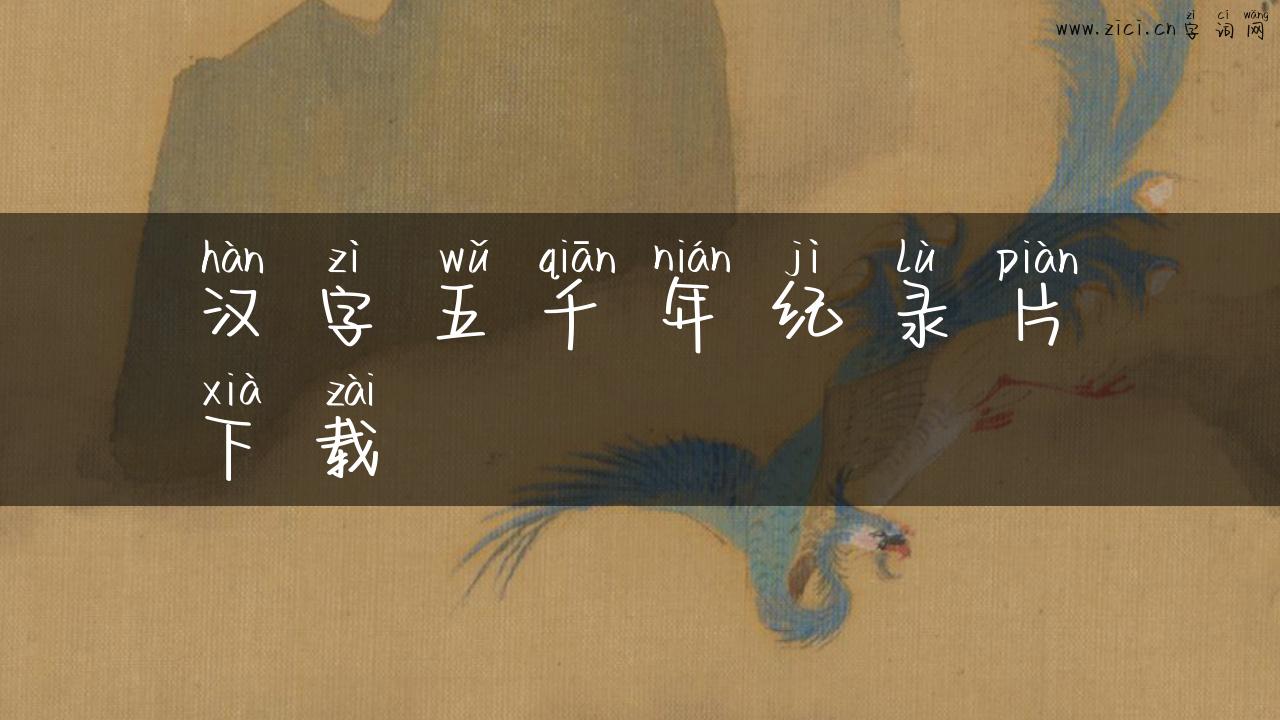 zì cí wǎng
www.zici.cn 字 词 网
hàn zì wǔ qiān nián jì lù piàn
汉 字 五 千 年 纪 录 片
xià zài
下 载